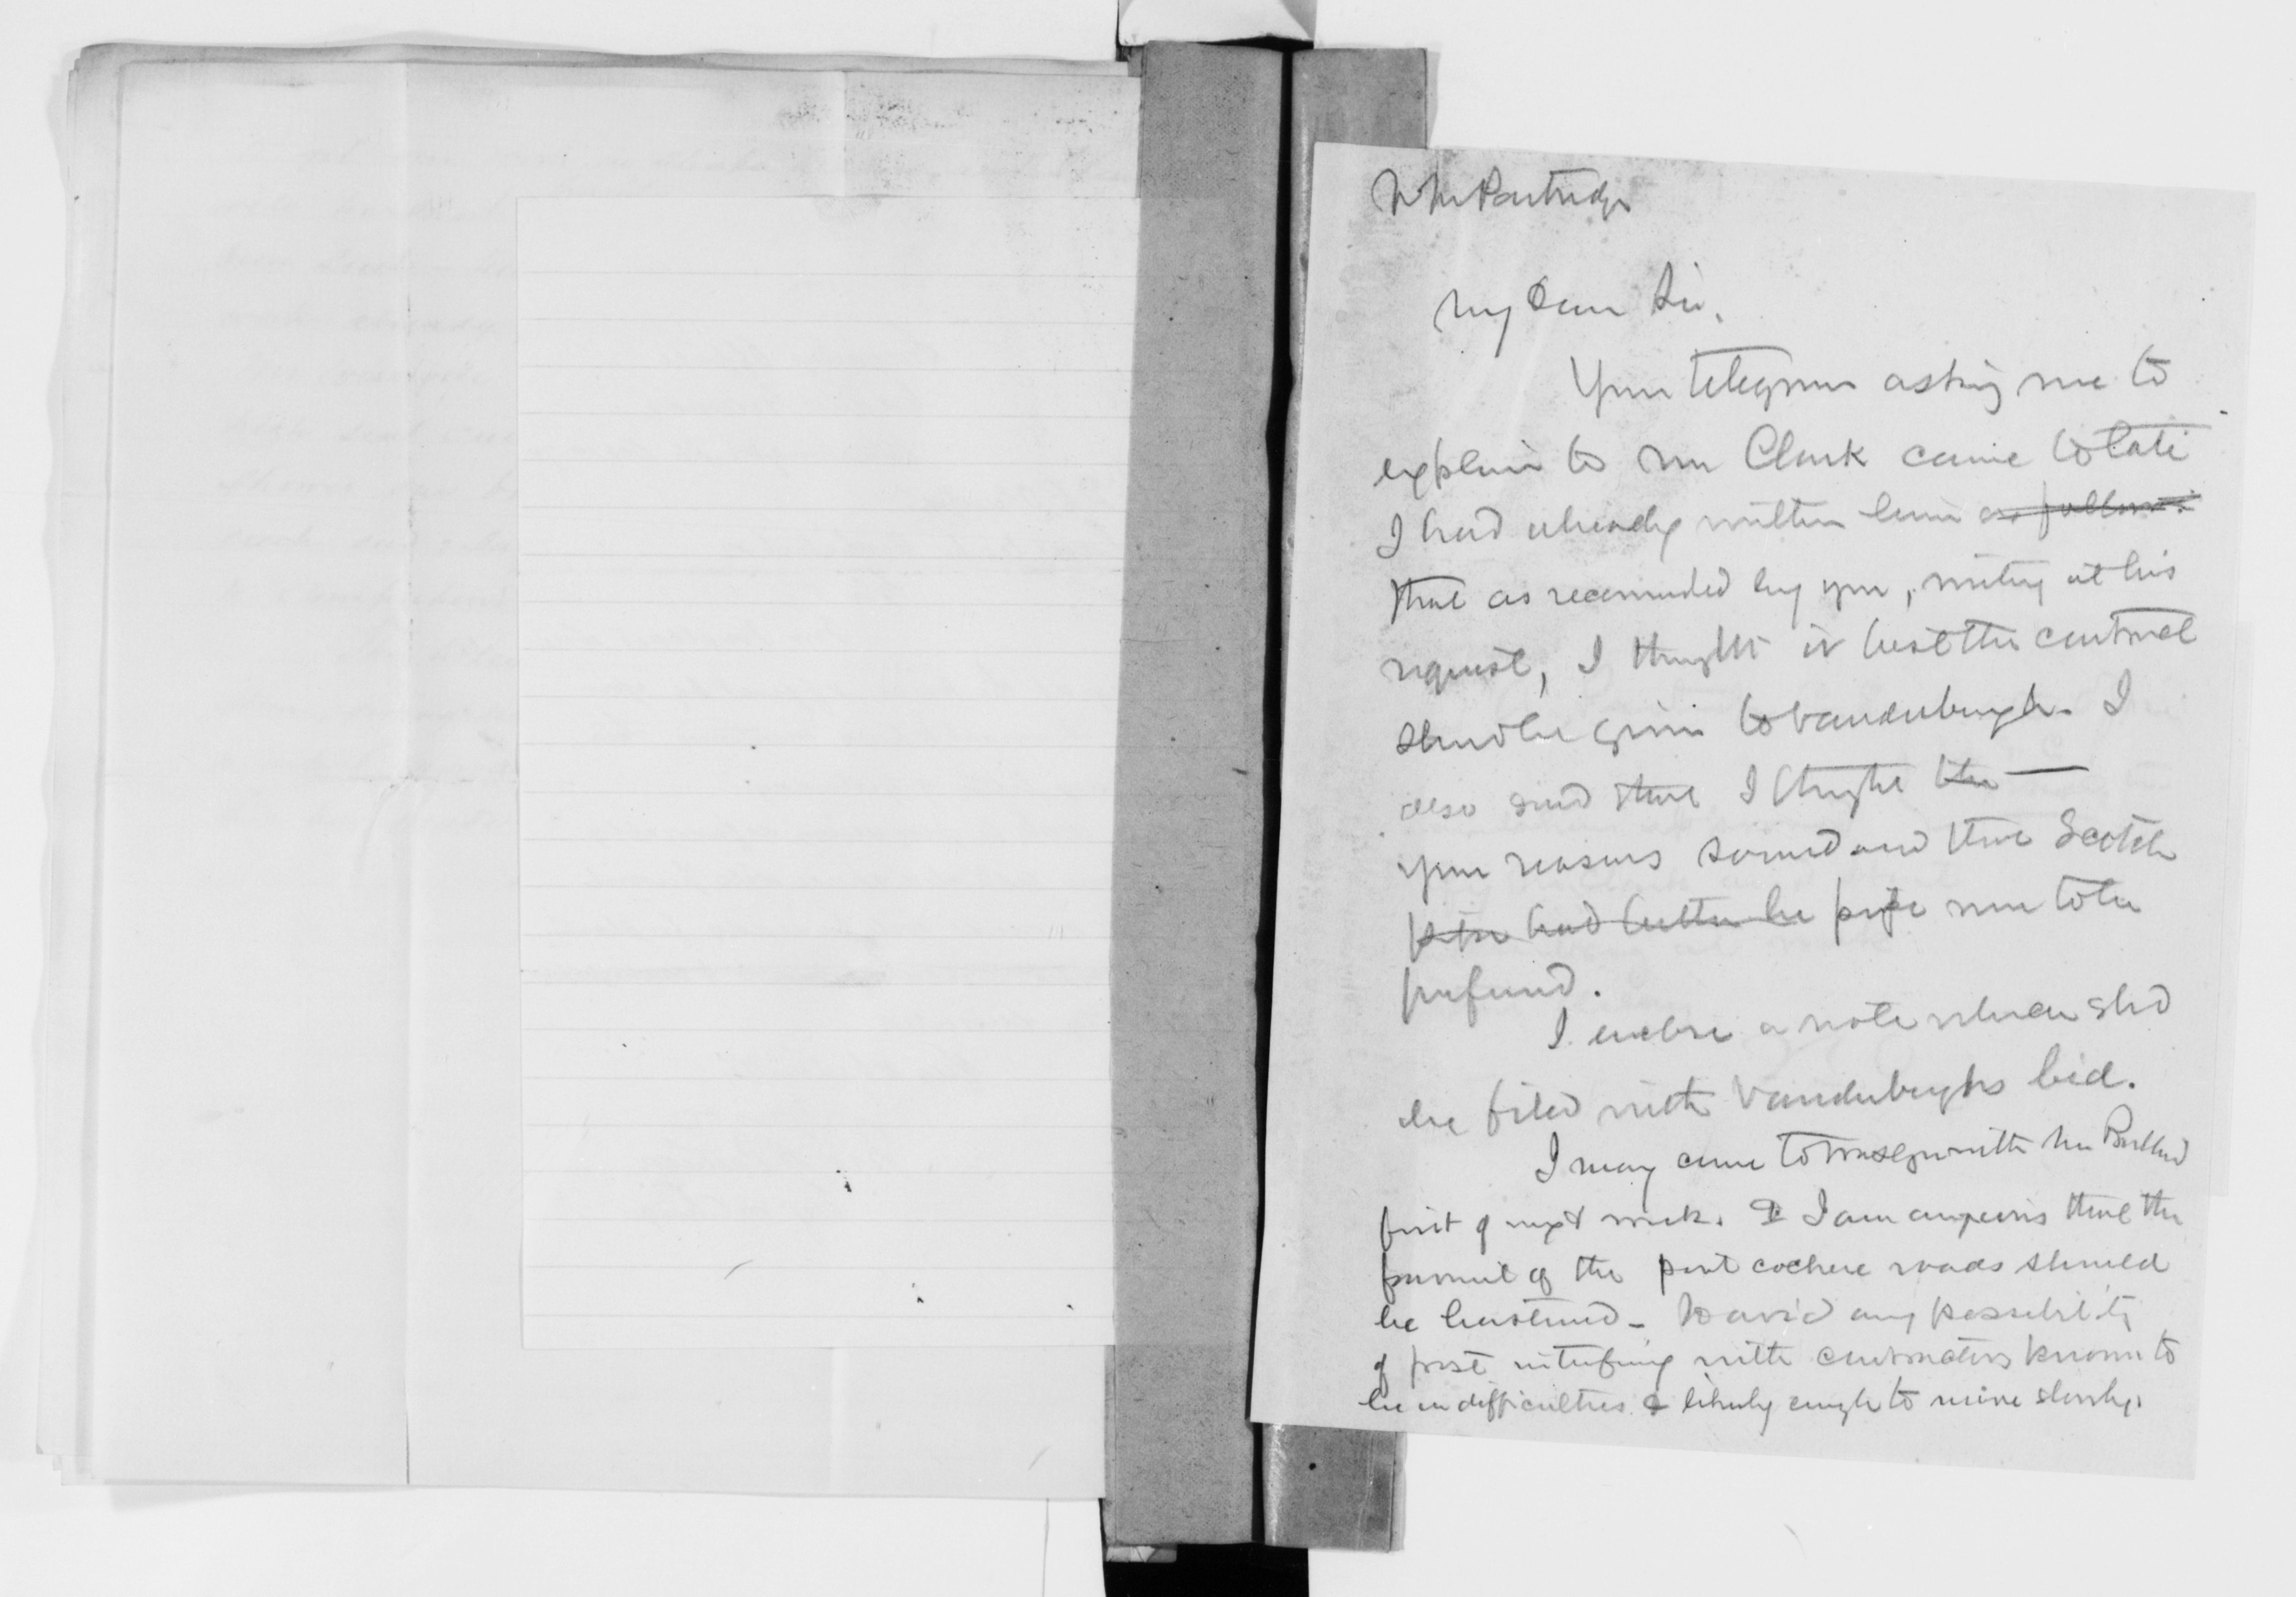 My dear Sir,
Your telegram asking me to
explain to Mr Clark came to late
I had already written him as follows:
that as recommended by you, writing at his
request, I thought it best the contract
should be given to Vanderburgh. I
also said that I thought the —
your reasons sound and that Scotch
had better be pipe was to be
preferred.
I enclose a note which shd
be filed with Vanderburghs bid.
I may come to with Mr
first of next week. I I am anxious that the
of the port cochere roads should
be hastened — to avoid any possibility
of frost interfering with contractors known to
be in difficulties & likely enough to move slowly.